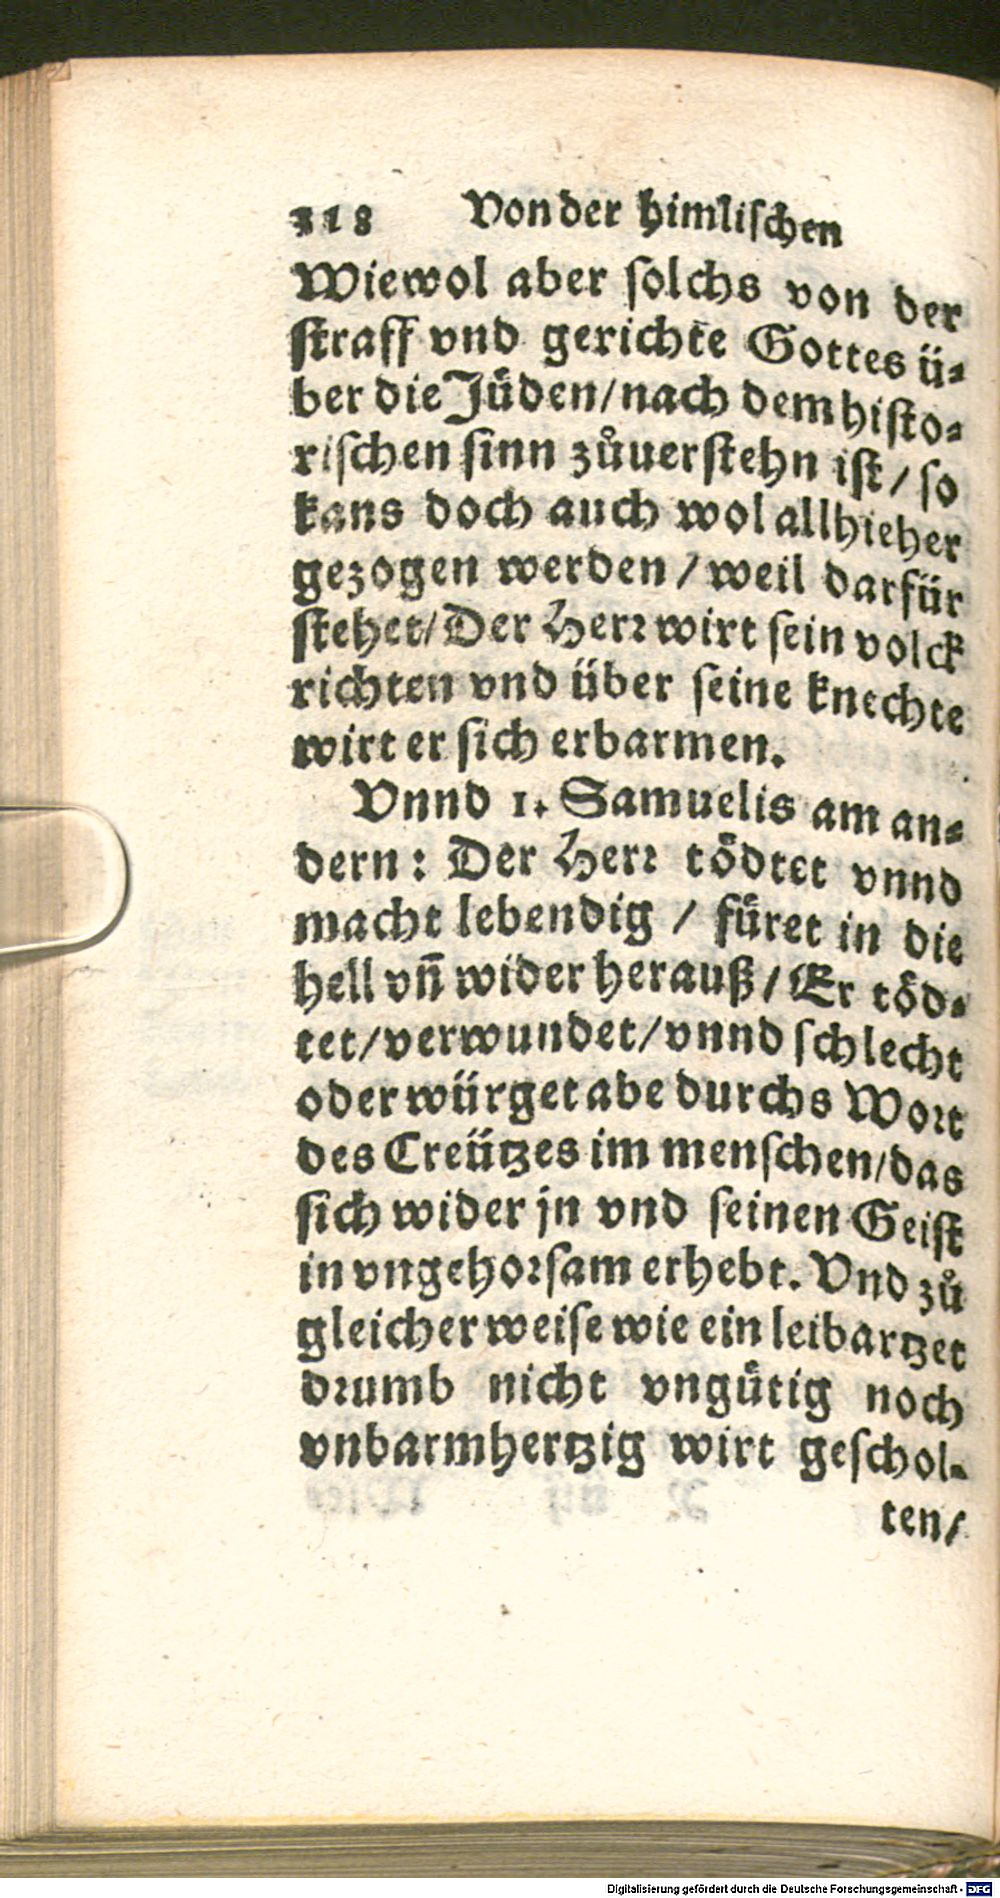 318 Von der himlischen
Wiewol aber ſolchs von der
ſtraff vnd gerichte Gottes ü⸗
ber die Jüden/nach dem hiſto⸗
riſchen ſinn zůuerſtehn iſt/ ſo
kans doch auch wol allhieher
gezogen werden / weil darfür
ſtehet/Der Herꝛ wirt ſein volck
richten vnd über ſeine knechte
wirt er ſich erbarmen.
Vnnd 1. Samuelis am an⸗
dern: Der Herꝛ tödtet vnnd
macht lebendig / füret in die
hell vñ wider herauß/ Er töd⸗
tet/verwundet/vnnd ſchlecht
oder würget abe durchs Woꝛt
des Creützes im menſchen/das
ſich wider jn vnd ſeinen Geiſt
in vngehoꝛſam erhebt. Vnd zů
gleicher weiſe wie ein leibartzet
dꝛumb nicht vngütig noch
vnbarmhertzig wirt geſchol⸗
ten/
Digitalisierung gefördert durch die Deutsche Forschungsgemeinschaft - DFG